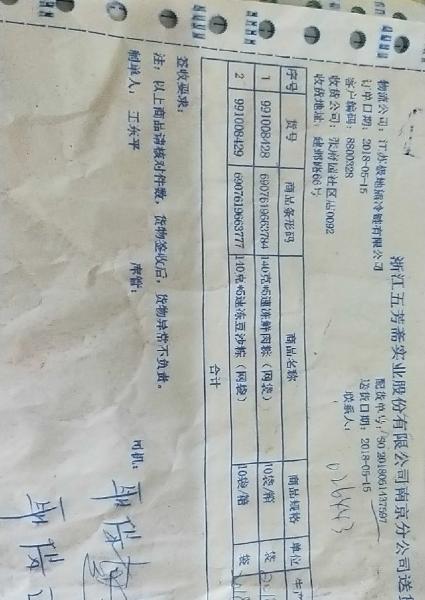 浙江五芳斋实业股份有限公司南京分公司送货
物流公司：江苏极地熊冷链有限公司
配货单号：SO201805143759
订单日期：2018-05-15
送货日期：2018-05-15
客户编码：8800328
联系人：
收货公司：张府园社区店0092
收货地址：建邺路66号
026443
序号 货号 商品条形码 商品名称 商品规格 单位 生产
1 991008428 6907619663784 140克*5速冻鲜肉粽（网袋） 10袋/箱 袋
2 991008429 6907619663777 140克*5速冻豆沙粽（网袋） 10袋/箱 袋
合计
签收要求：
注：以上商品请核对件数，货物签收后，货物异常不负责。
制单人：王东平 库管： 司机：